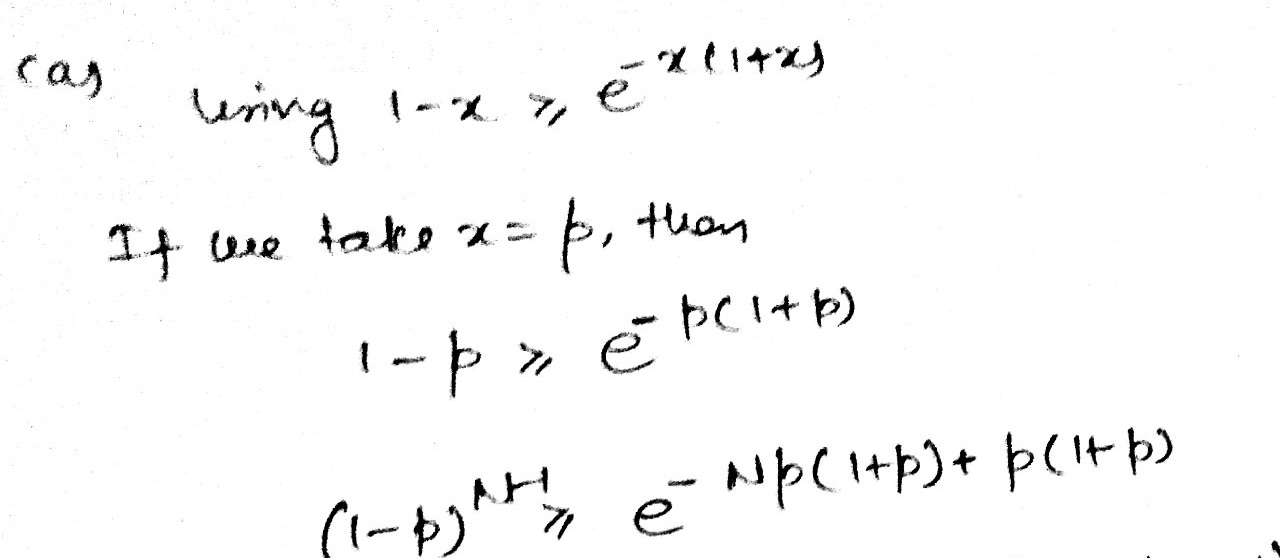 (a) using 1-x ≥ e^{-x(1+x)}
If we take x = p, then
1-p ≥ e^{-p(1+p)}
(1-p)^{N-1} ≥ e^{-Np(1+p) + p(1+p)}